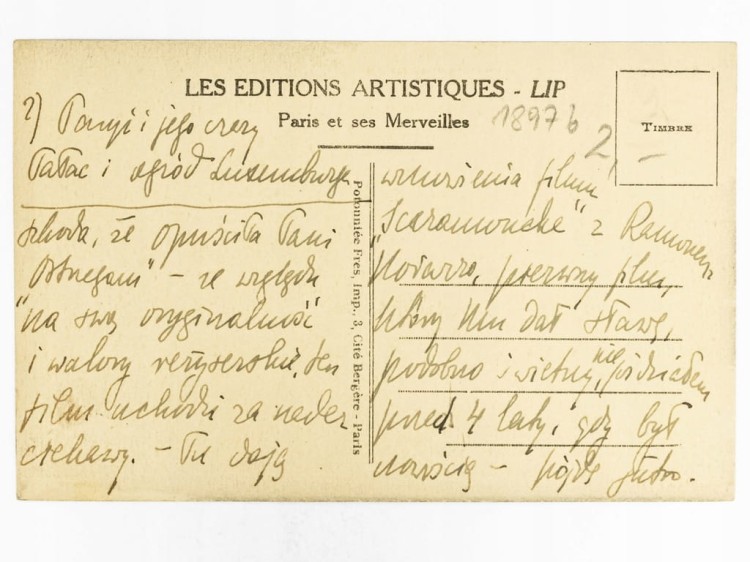 LES EDITIONS ARTISTIQUES - LIP
Paris et ses Merveilles
18976
2
TIMBRE
2) Paryż i jego czary
Pałac i ogród Luxemburg
szkoda, że opuściła Pani
" - ze względu
na swą oryginalność
i walory reżyserskie, ten
film uchodzi za nader
ciekawy. - Tu dają
Potonniée Fres, Imp., 3, Cité Bergère - Paris
wznowienia filmu
"Scaramouche" z Ramonem
Novarro, pierwszy film,
który Mu dał sławę,
podobno świetny, nie widziałem
przed 4 laty, gdy był
nowością - pójdę jutro.